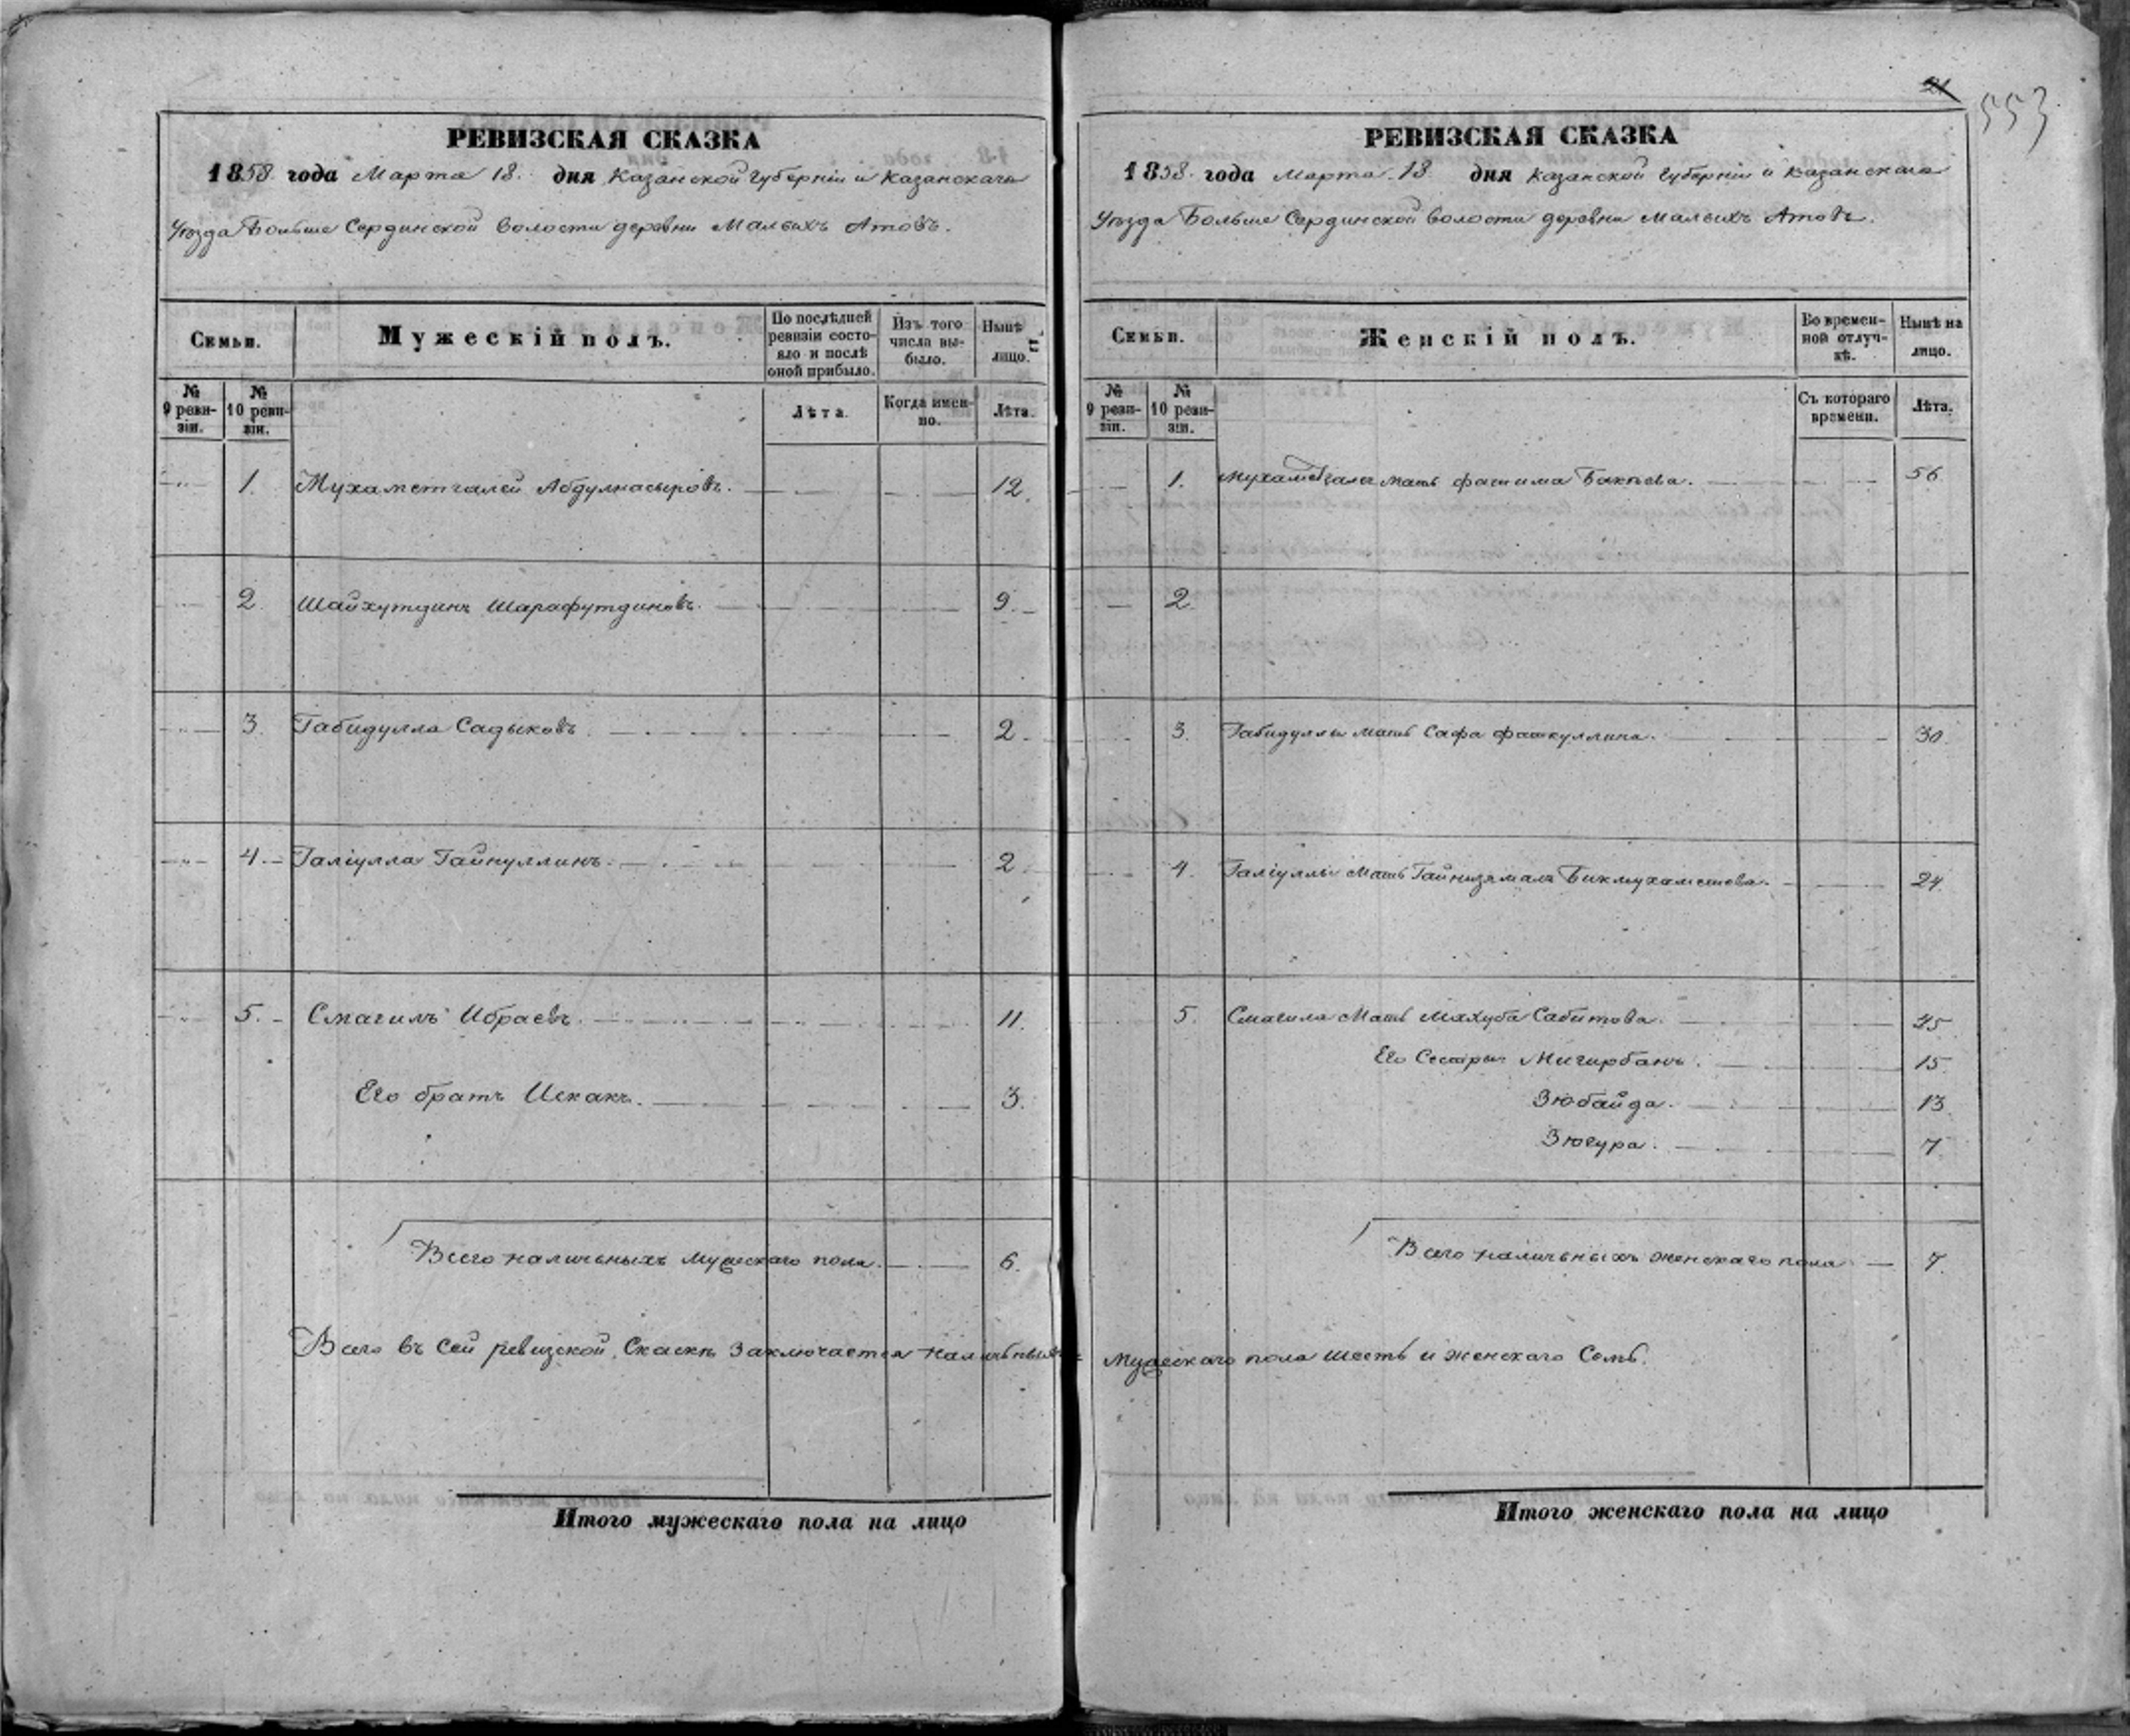 РЕВИЗСКАЯ СКАЗКА
1858 года Марта 18. дня Казанской Губерніи и Казанскаго
Уѣзда Больше Сердинской волости деревни Малыхъ Атовъ.
Семьи.
Мужескій полъ.
По послѣдней ревизіи состояло и послѣ оной прибыло.
Изъ того числа выбыло.
Нынѣ на лицо.
№ 9 ревизіи.
№ 10 ревизіи.
Лѣта.
Когда именно.
Лѣта.
1. Мухаметгалей Абдулнасыровъ. 12.
2. Шайхутдинъ Шарафутдиновъ. 9.
3. Габидулла Садыковъ 2.
4. Галіулла Гайнуллинъ. 2
5. Смагилъ Ибраевъ. 11.
Его братъ Искакъ. 3.
Всего наличныхъ мужескаго пола. 6.
Всего въ сей ревизской Скаскѣ Заключается наличныхъ
Итого мужескаго пола на лицо
21
553
РЕВИЗСКАЯ СКАЗКА
1858. года Марта 18 дня Казанской Губерніи и Казанскаго
Уѣзда Больше Сердинской волости деревни Малыхъ Атовъ.
Семьи.
Женскій полъ.
Во временной отлучкѣ.
Нынѣ на лицо.
№ 9 ревизіи.
№ 10 ревизіи.
Съ котораго времени.
Лѣта.
1. мать Фатима Бакѣева. 56
2.
3. Габидуллы мать Сафа 30.
4. Галіуллы Мать Гайнизямалъ Бикмухаметева. 24.
5. Смагила Мать Махуба Сабитова. 45
Его Сестры Мигирбану. 15
Зюбайда. 13
Зюгура. 7
Всего наличныхъ женскаго пола 7.
мужескаго пола шесть и женскаго Семь.
Итого женскаго пола на лицо